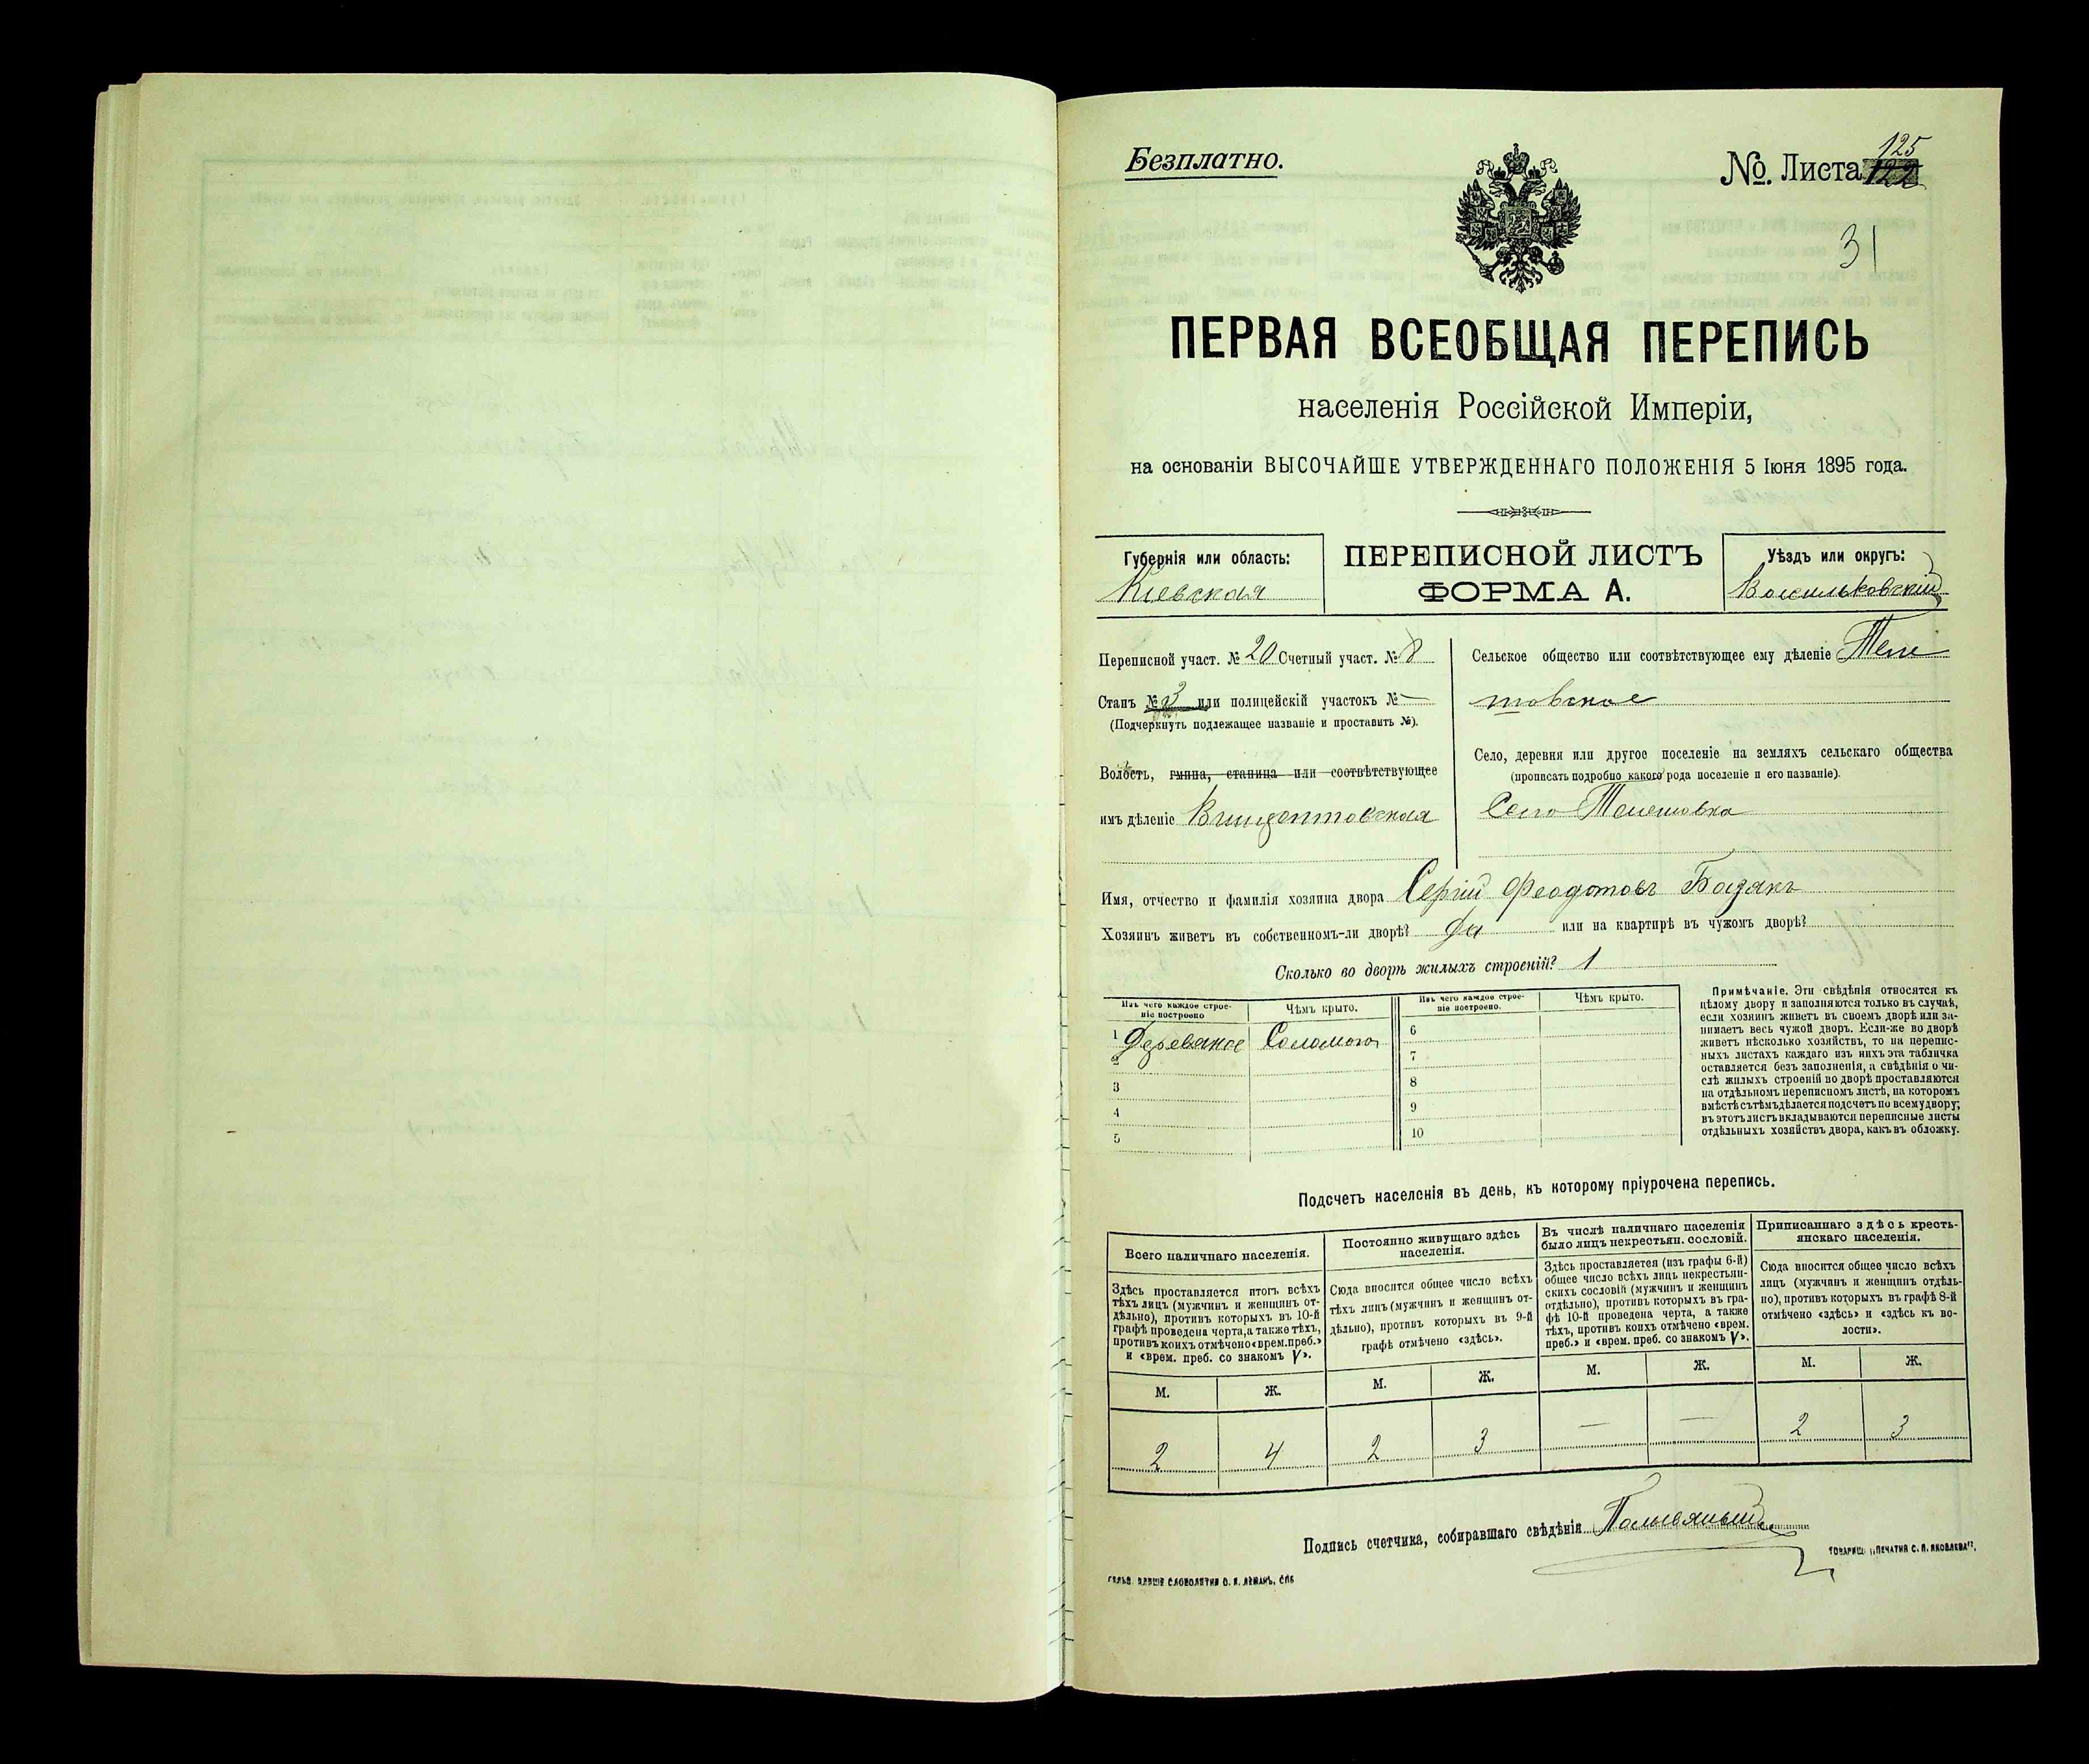 Безплатно.
№. Листа 125
122
31
ПЕРВАЯ ВСЕОБЩАЯ ПЕРЕПИСЬ
населенія Россійской Имперіи,
на основаніи ВЫСОЧАЙШЕ УТВЕРЖДЕННАГО ПОЛОЖЕНІЯ 5 Іюня 1895 года.
Губернія или область:
Кіевская
ПЕРЕПИСНОЙ ЛИСТЪ
ФОРМА А.
Уѣздъ или округъ:
Васильковскій
Переписной участ. № 20 Счетный участ. № 8
Станъ № 3 или полицейскій участокъ № —
(Подчеркнуть подлежащее названіе и проставить №).
Волость, гмина, станица или соотвѣтствующее
имъ дѣленіе Винцентовская
Сельское общество или соотвѣтствующее ему дѣленіе Теле
шовское
Село, деревня или другое поселеніе на земляхъ сельскаго общества
(прописать подробно какого рода поселеніе и его названіе).
Село Телешовка
Имя, отчество и фамилія хозяина двора Сергій Феодотовъ Бозакъ
Хозяинъ живетъ въ собственномъ-ли дворѣ? Да или на квартирѣ въ чужомъ дворѣ?
Сколько во дворѣ жилыхъ строеній? 1
Изъ чего каждое строе-
ніе построено
Чѣмъ крыто.
Изъ чего каждое строе-
ніе построено.
Чѣмъ крыто.
1 Деревяное Соломою
2
3
4
5
6
7
8
9
10
Примѣчаніе. Эти свѣдѣнія относятся къ
цѣлому двору и заполняются только въ случаѣ,
если хозяинъ живетъ въ своемъ дворѣ или за-
нимаетъ весь чужой дворъ. Если-же во дворѣ
живетъ нѣсколько хозяйствъ, то на перепис-
ныхъ листахъ каждаго изъ нихъ эта табличка
оставляется безъ заполненія, а свѣдѣнія о чи-
слѣ жилыхъ строеній во дворѣ проставляются
на отдѣльномъ переписномъ листѣ, на которомъ
вмѣстѣ съ тѣмъ дѣлается подсчетъ по всему двору;
въ этотъ листъ вкладываются переписные листы
отдѣльныхъ хозяйствъ двора, какъ въ обложку.
Подсчетъ населенія въ день, къ которому пріурочена перепись.
Всего наличнаго населенія.
Здѣсь проставляется итогъ всѣхъ
тѣхъ лицъ (мужчинъ и женщинъ от-
дѣльно), противъ которыхъ въ 10-й
графѣ проведена черта, а также тѣхъ,
противъ коихъ отмѣчено «врем. преб.»
и «врем. преб. со знакомъ V».
Постоянно живущаго здѣсь
населенія.
Сюда вносится общее число всѣхъ
тѣхъ лицъ (мужчинъ и женщинъ от-
дѣльно), противъ которыхъ въ 9-й
графѣ отмѣчено «здѣсь».
Въ числѣ наличнаго населенія
было лицъ некрестьян. сословій.
Здѣсь проставляется (изъ графы 6-й)
общее число всѣхъ лицъ некрестьян-
скихъ сословій (мужчинъ и женщинъ
отдѣльно), противъ которыхъ въ гра-
фѣ 10-й проведена черта, а также
тѣхъ, противъ коихъ отмѣчено «врем.
преб.» и «врем. преб. со знакомъ V».
Приписаннаго здѣсь кресть-
янскаго населенія.
Сюда вносится общее число всѣхъ
лицъ (мужчинъ и женщинъ отдѣль-
но), противъ которыхъ въ графѣ 8-й
отмѣчено «здѣсь» и «здѣсь къ во-
лости».
М. Ж. М. Ж. М. Ж. М. Ж.
2 4 2 3 — — 2 3
Подпись счетчика, собиравшаго свѣдѣнія
ТОВАРИЩ. „ПЕЧАТНЯ С. П. ЯКОВЛЕВА“.
СЛОВОЛИТНИ О. И. ЛЕМАНЪ, СПБ